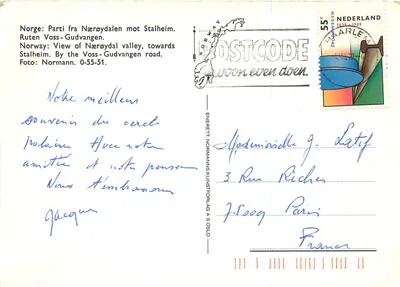 Norge: Parti fra Nærøydalen mot Stalheim.
Ruten Voss-Gudvangen.
Norway: View of Nærøydal valley, towards
Stalheim. By the Voss-Gudvangen road.
Foto: Normann. 0-55-51.
Notre meilleur
souvenir du cercle
polaire Avec notre
amitié et notre pensée
Nous t'embrassons
Jacques
NORWAY
ENERETT NORMANNS KUNSTFORLAG A/S OSLO
POSTCODE
gewoon even doen.
HAARLEM
55 c NEDERLAND
Mademoiselle G. Latif
3 Rue Richer
75009 Paris
France